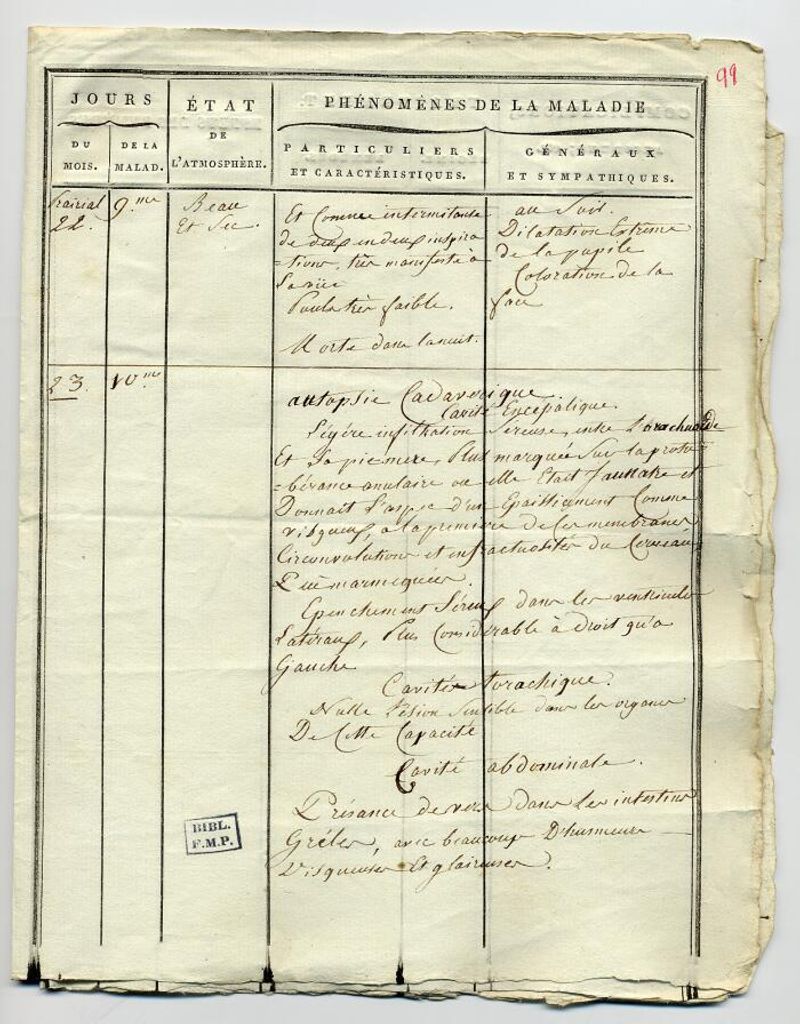 99
JOURS
DU MOIS.
DE LA MALAD.
ÉTAT
DE
L'ATMOSPHÈRE.
PHÉNOMÈNES DE LA MALADIE
PARTICULIERS
ET CARACTÉRISTIQUES.
GÉNÉRAUX
ET SYMPATHIQUES.
Prairial
22.
9.me
Beau
Et Sec
Et Comme intermitante
de deux en deux inspira
=tions, très manifeste à
La vüe
Pouls très faible.
Morte dans la nuit.
au Soir.
Dilatation Extrême
de la pupile
Coloration de la
face
23.
10.me
autopsie Cadaverique.
Cavité Encépalique.
Légère infiltration Sereuse, entre L'arachnoïde
Et La pie mere, Plus marquée Sur la protu
=bérance anulaire ou elle Etait Jaunatre et
Donnait L'aspec d'un Epaississement Comme
visqueux, a la premiere de Ces membranes
Circonvolutions et enfractuosités du Cerveau
Epenchement Séreux dans les ventricules
Latéraux, Plus Considérable à droit qu'a
Gauche
Cavité torachique.
Nulle Lésion Sensible dans les organes
De Cette Capacité
Cavité abdominale.
Présance de vers dans Les intestins
Grêles, avec beaucoup D'humeurs
Visqueuses Et glaireuses.
BIBL.
F.M.P.